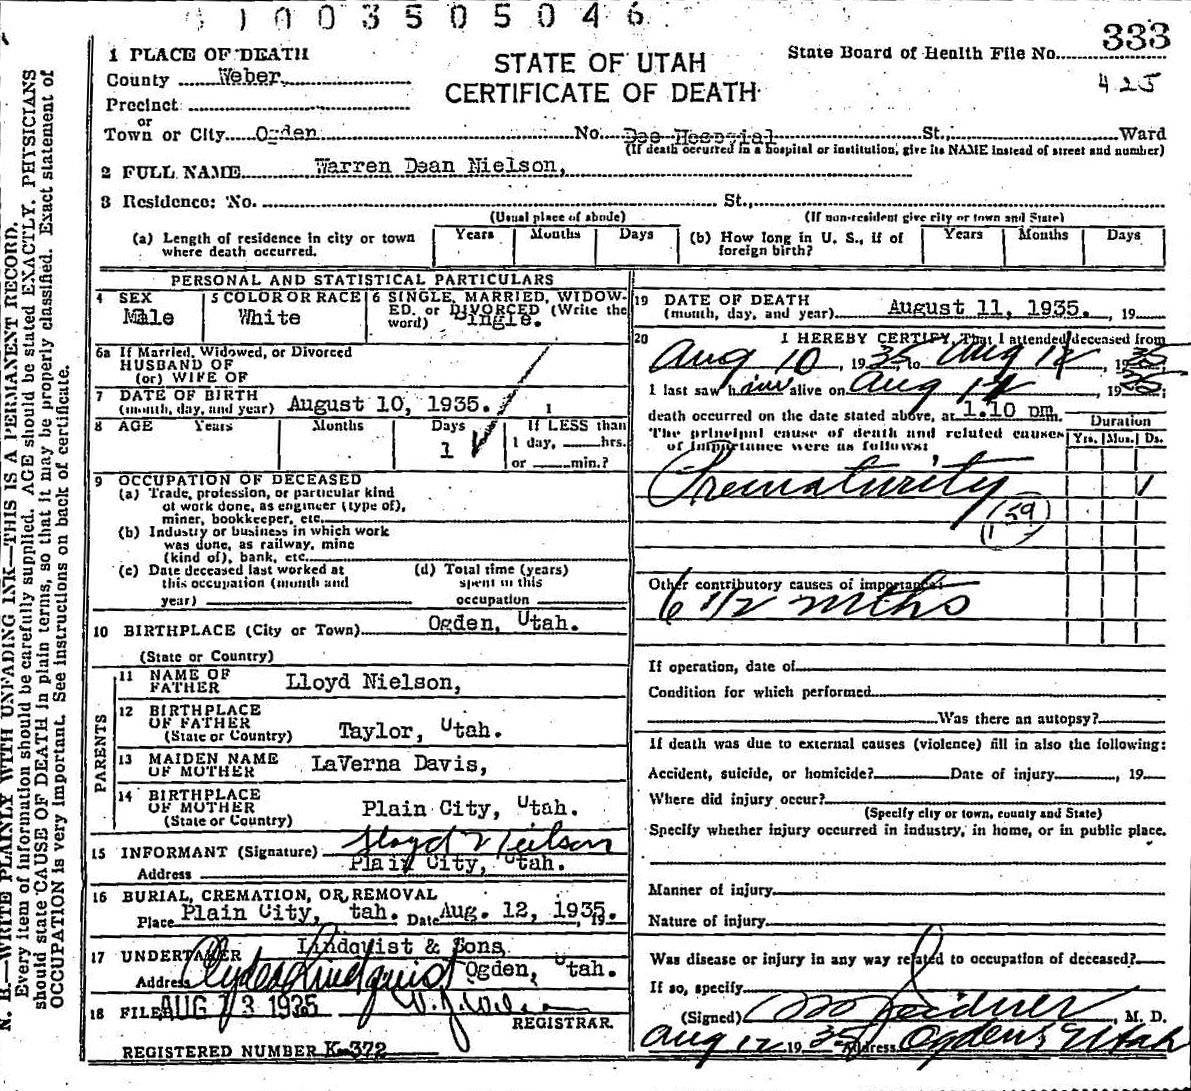 1003505046
333
1 PLACE OF DEATH
STATE OF UTAH
State Board of Health File No.
County Weber,
425
CERTIFICATE OF DEATH
Precinct
or
Town or City Ogden No. Dee Hospvial St., Ward
(If death occurred in a hospital or institution, give its NAME instead of street and number)
2 FULL NAME Warren Dean Nielson,
3 Residence: No. St.,
(Usual place of abode) (If non-resident give city or town and State)
(a) Length of residence in city or town where death occurred. Years Months Days
(b) How long in U. S., if of foreign birth? Years Months Days
PERSONAL AND STATISTICAL PARTICULARS
4 SEX
Male
5 COLOR OR RACE
White
6 SINGLE, MARRIED, WIDOW-
ED, or DIVORCED (Write the
word) Single.
6a If Married, Widowed, or Divorced
HUSBAND OF
(or) WIFE OF
7 DATE OF BIRTH
(month, day, and year) August 10, 1935. 1
8 AGE Years Months Days If LESS than
1 1 day, hrs.
or min.?
9 OCCUPATION OF DECEASED
(a) Trade, profession, or particular kind
of work done, as engineer (type of),
miner, bookkeeper, etc.
(b) Industry or business in which work
was done, as railway, mine
(kind of), bank, etc.
(c) Date deceased last worked at
this occupation (month and
year)
(d) Total time (years)
spent in this
occupation
10 BIRTHPLACE (City or Town) Ogden, Utah.
(State or Country)
PARENTS
11 NAME OF
FATHER Lloyd Nielson,
12 BIRTHPLACE
OF FATHER
(State or Country) Taylor, Utah.
13 MAIDEN NAME
OF MOTHER LaVerna Davis,
14 BIRTHPLACE
OF MOTHER
(State or Country) Plain City, Utah.
15 INFORMANT (Signature) Lloyd Neilson
Address Plain City, Utah.
16 BURIAL, CREMATION, OR REMOVAL
Place Plain City, tah. Date Aug. 12, 1935. 19
17 UNDERTAKER Lindquist & Sons
Address Clyde Lindquist Ogden, Utah.
18 FILED AUG 13 1935
REGISTRAR.
REGISTERED NUMBER K-372
19 DATE OF DEATH
(month, day, and year) August 11, 1935. , 19
20 I HEREBY CERTIFY, That I attended deceased from
Aug 10, 1935, to Aug , 1935
I last saw him alive on Aug , 1935;
death occurred on the date stated above, at 1.10 pm.
The principal cause of death and related causes
of importance were as follows:
Duration
Yrs. Mos. Ds.
Prematurity 1
159
Other contributory causes of importance:
6 1/2 mths
If operation, date of
Condition for which performed
Was there an autopsy?
If death was due to external causes (violence) fill in also the following:
Accident, suicide, or homicide? Date of injury , 19
Where did injury occur?
(Specify city or town, county and State)
Specify whether injury occurred in industry, in home, or in public place.
Manner of injury
Nature of injury
Was disease or injury in any way related to occupation of deceased?
If so, specify
(Signed) , M. D.
Aug 12 1935 Address Ogden, Utah
N. B.—WRITE PLAINLY WITH UNFADING INK—THIS IS A PERMANENT RECORD.
Every item of information should be carefully supplied. AGE should be stated EXACTLY. PHYSICIANS
should state CAUSE OF DEATH in plain terms, so that it may be properly classified. Exact statement of
OCCUPATION is very important. See instructions on back of certificate.